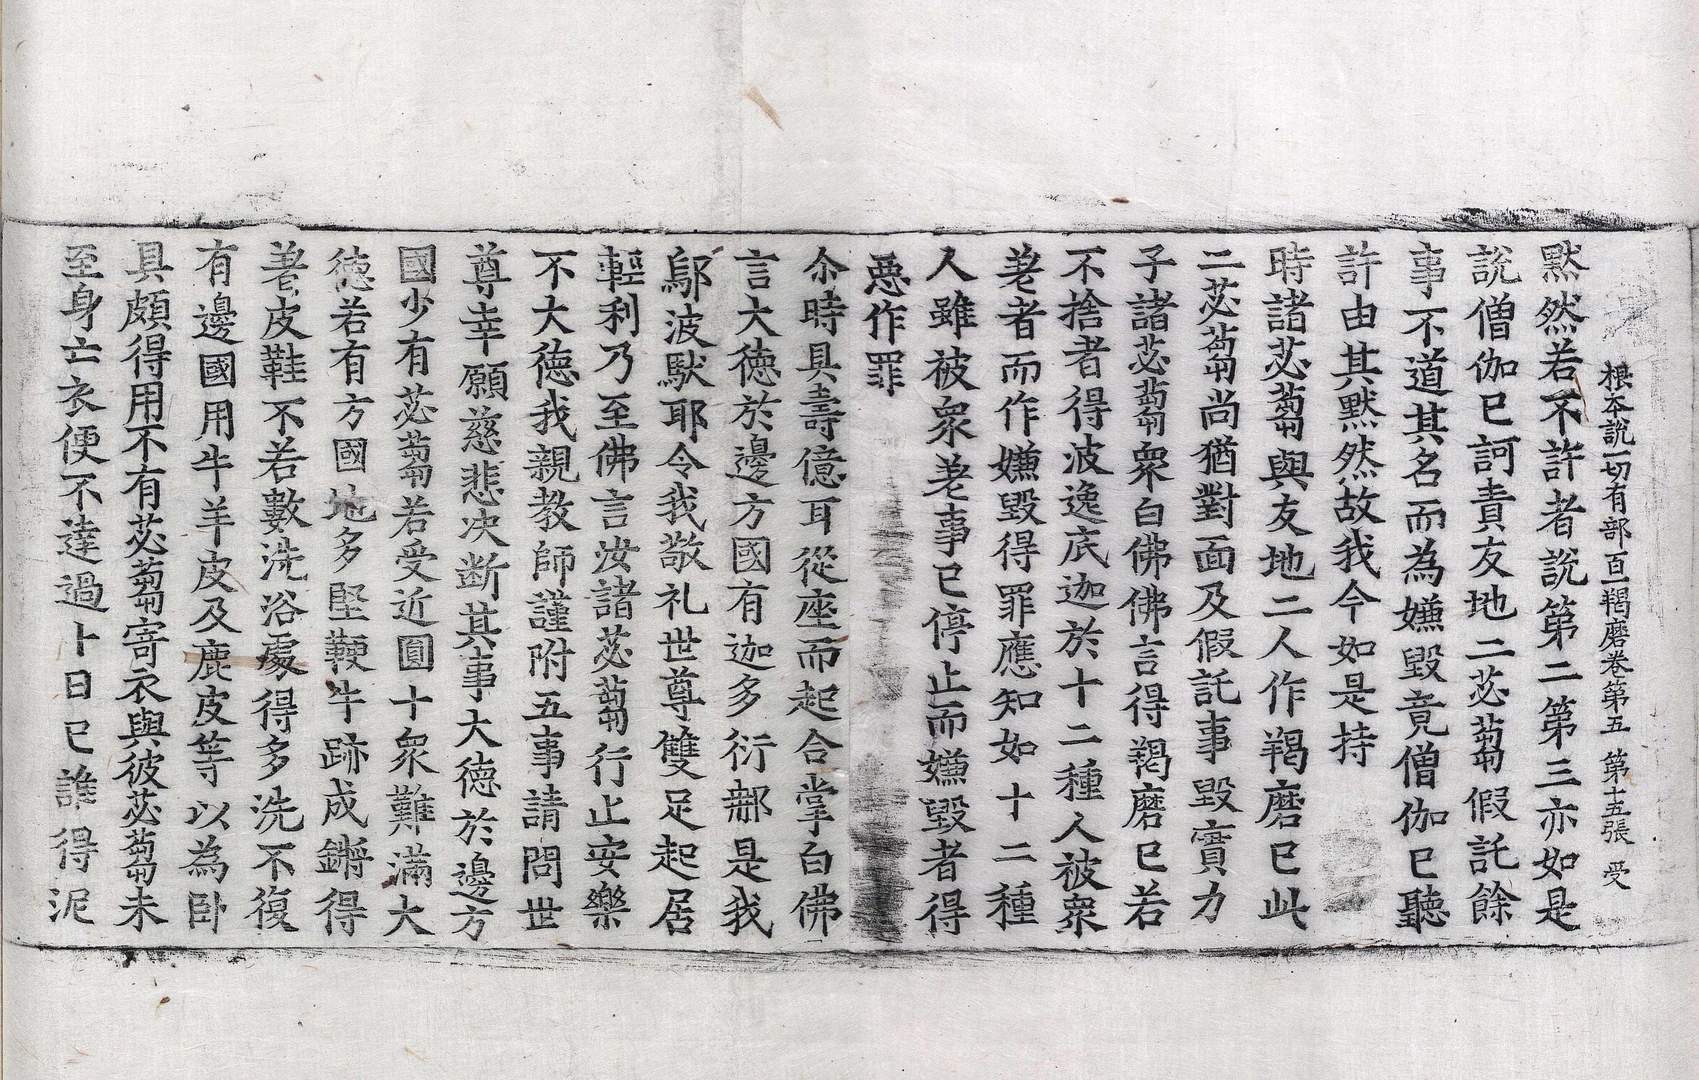 根本說一切有部百一羯磨卷第五 第十五張 受
默然若不許者說第二第三亦如是
說僧伽已訶責友地二苾蒭假託餘
事不道其名而為嫌毀竟僧伽已聽
許由其默然故我今如是持
時諸苾蒭與友地二人作羯磨已此
二苾蒭尚猶對面及假託事毀實力
子諸苾蒭衆白佛佛言得羯磨已若
不捨者得波逸底迦於十二種人被衆
差者而作嫌毀得罪應知如十二種
人雖被衆差事已停止而嫌毀者得
惡作罪
尒時具壽億耳從座而起合掌白佛
言大德於邊方國有迦多衍那是我
鄔波馱耶令我敬礼世尊雙足起居
輕利乃至佛言汝諸苾蒭行止安樂
不大德我親教師謹附五事請問世
尊幸願慈悲決断其事大德於邊方
國少有苾蒭若受近圓十衆難滿大
德若有方國地多堅鞕牛跡成鏘得
著皮鞋不若數洗浴處得多洗不復
有邊國用牛羊皮及鹿皮等以為卧
具頗得用不有苾蒭寄衣與彼苾蒭未
至身亡衣便不達過十日已誰得泥